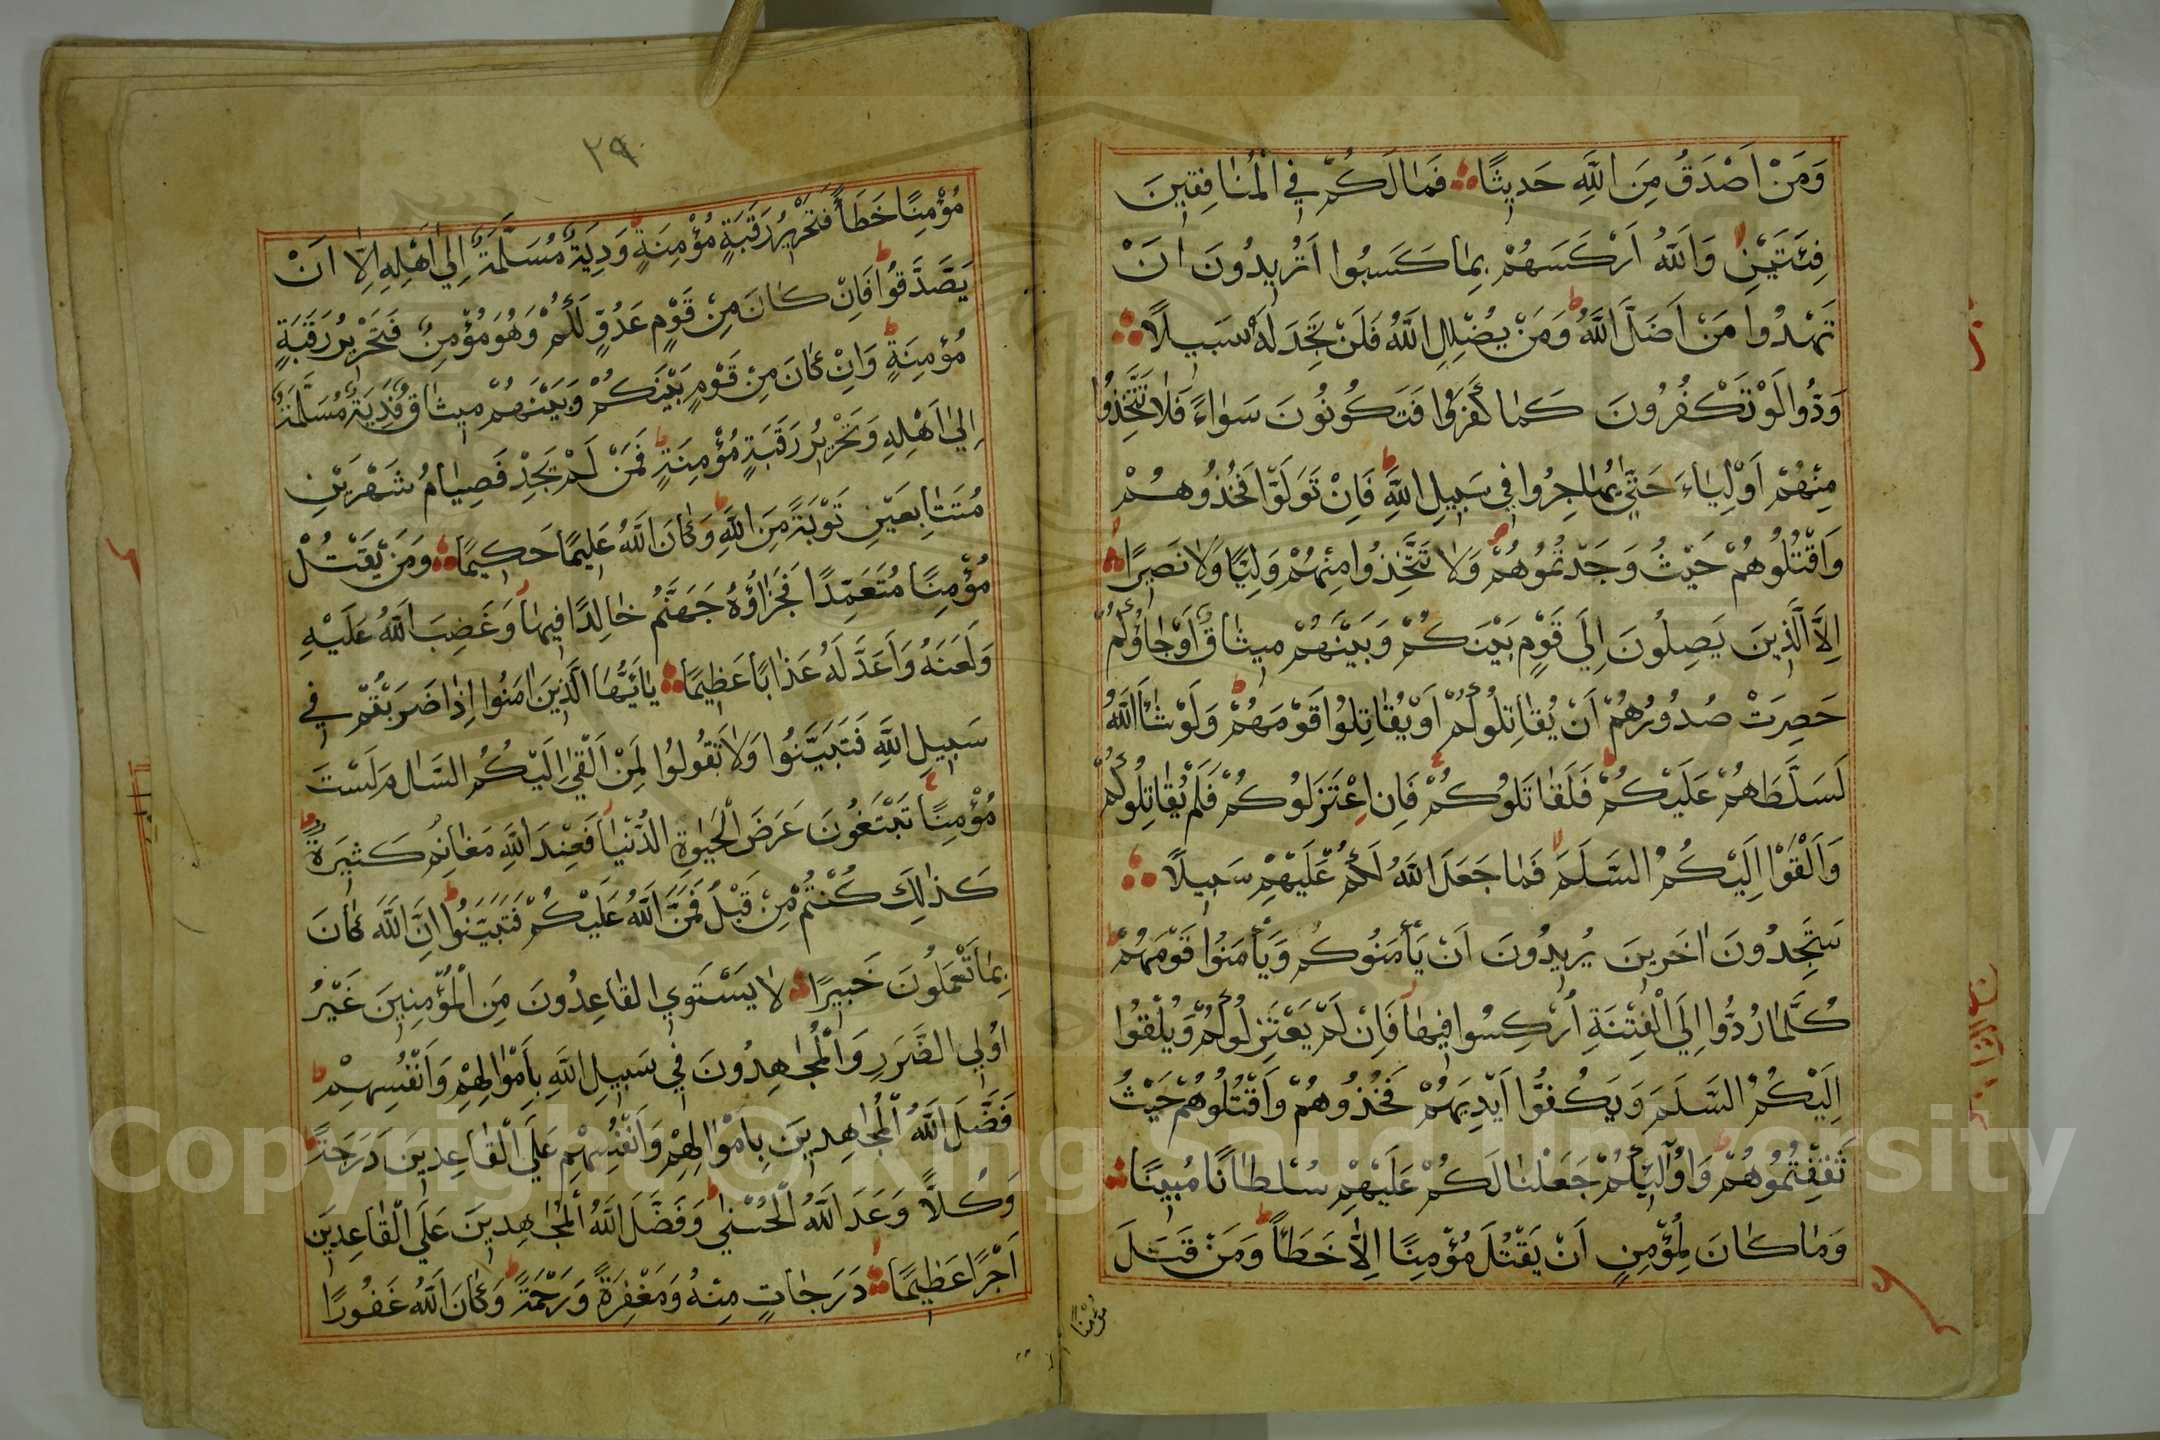 وَمَنْ اَصْدَقُ مِنَ اللّٰهِ حَدِيثًا فَمَا لَكُمْ فِي الْمُنَافِقِينَ
فِئَتَيْنِ وَاللّٰهُ اَرْكَسَهُمْ بِمَا كَسَبُوا اَتُرِيدُونَ اَنْ
تَهْدُوا مَنْ اَضَلَّ اللّٰهُ وَمَنْ يُضْلِلِ اللّٰهُ فَلَنْ تَجِدَ لَهُ سَبِيلًا
وَدُّوا لَوْ تَكْفُرُونَ كَمَا كَفَرُوا فَتَكُونُونَ سَوَاءً فَلَا تَتَّخِذُوا
مِنْهُمْ اَوْلِيَاءَ حَتّٰى يُهَاجِرُوا فِي سَبِيلِ اللّٰهِ فَاِنْ تَوَلَّوْا فَخُذُوهُمْ
وَاقْتُلُوهُمْ حَيْثُ وَجَدْتُمُوهُمْ وَلَا تَتَّخِذُوا مِنْهُمْ وَلِيًّا وَلَا نَصِيرًا
اِلَّا الَّذِينَ يَصِلُونَ اِلٰى قَوْمٍ بَيْنَكُمْ وَبَيْنَهُمْ مِيثَاقٌ اَوْ جَاؤُكُمْ
حَصِرَتْ صُدُورُهُمْ اَنْ يُقَاتِلُوكُمْ اَوْ يُقَاتِلُوا قَوْمَهُمْ وَلَوْ شَاءَ اللّٰهُ
لَسَلَّطَهُمْ عَلَيْكُمْ فَلَقَاتَلُوكُمْ فَاِنِ اعْتَزَلُوكُمْ فَلَمْ يُقَاتِلُوكُمْ
وَاَلْقَوْا اِلَيْكُمُ السَّلَمَ فَمَا جَعَلَ اللّٰهُ لَكُمْ عَلَيْهِمْ سَبِيلًا
سَتَجِدُونَ اٰخَرِينَ يُرِيدُونَ اَنْ يَأْمَنُوكُمْ وَيَأْمَنُوا قَوْمَهُمْ
كُلَّمَا رُدُّوا اِلَى الْفِتْنَةِ اُرْكِسُوا فِيهَا فَاِنْ لَمْ يَعْتَزِلُوكُمْ وَيُلْقُوا
اِلَيْكُمُ السَّلَمَ وَيَكُفُّوا اَيْدِيَهُمْ فَخُذُوهُمْ وَاقْتُلُوهُمْ حَيْثُ
ثَقِفْتُمُوهُمْ وَاُولٰئِكُمْ جَعَلْنَا لَكُمْ عَلَيْهِمْ سُلْطَانًا مُبِينًا
وَمَا كَانَ لِمُؤْمِنٍ اَنْ يَقْتُلَ مُؤْمِنًا اِلَّا خَطَأً وَمَنْ قَتَلَ
مُؤْمِنًا
٢٩
مُؤْمِنًا خَطَأً فَتَحْرِيرُ رَقَبَةٍ مُؤْمِنَةٍ وَدِيَةٌ مُسَلَّمَةٌ اِلٰى اَهْلِهِ اِلَّا اَنْ
يَصَّدَّقُوا فَاِنْ كَانَ مِنْ قَوْمٍ عَدُوٍّ لَكُمْ وَهُوَ مُؤْمِنٌ فَتَحْرِيرُ رَقَبَةٍ
مُؤْمِنَةٍ وَاِنْ كَانَ مِنْ قَوْمٍ بَيْنَكُمْ وَبَيْنَهُمْ مِيثَاقٌ فَدِيَةٌ مُسَلَّمَةٌ
اِلٰى اَهْلِهِ وَتَحْرِيرُ رَقَبَةٍ مُؤْمِنَةٍ فَمَنْ لَمْ يَجِدْ فَصِيَامُ شَهْرَيْنِ
مُتَتَابِعَيْنِ تَوْبَةً مِنَ اللّٰهِ وَكَانَ اللّٰهُ عَلِيمًا حَكِيمًا وَمَنْ يَقْتُلْ
مُؤْمِنًا مُتَعَمِّدًا فَجَزَاؤُهُ جَهَنَّمُ خَالِدًا فِيهَا وَغَضِبَ اللّٰهُ عَلَيْهِ
وَلَعَنَهُ وَاَعَدَّ لَهُ عَذَابًا عَظِيمًا يَا اَيُّهَا الَّذِينَ اٰمَنُوا اِذَا ضَرَبْتُمْ فِي
سَبِيلِ اللّٰهِ فَتَبَيَّنُوا وَلَا تَقُولُوا لِمَنْ اَلْقٰى اِلَيْكُمُ السَّلَامَ لَسْتَ
مُؤْمِنًا تَبْتَغُونَ عَرَضَ الْحَيٰوةِ الدُّنْيَا فَعِنْدَ اللّٰهِ مَغَانِمُ كَثِيرَةٌ
كَذٰلِكَ كُنْتُمْ مِنْ قَبْلُ فَمَنَّ اللّٰهُ عَلَيْكُمْ فَتَبَيَّنُوا اِنَّ اللّٰهَ كَانَ
بِمَا تَعْمَلُونَ خَبِيرًا لَا يَسْتَوِي الْقَاعِدُونَ مِنَ الْمُؤْمِنِينَ غَيْرُ
اُولِي الضَّرَرِ وَالْمُجَاهِدُونَ فِي سَبِيلِ اللّٰهِ بِاَمْوَالِهِمْ وَاَنْفُسِهِمْ
فَضَّلَ اللّٰهُ الْمُجَاهِدِينَ بِاَمْوَالِهِمْ وَاَنْفُسِهِمْ عَلَى الْقَاعِدِينَ دَرَجَةً
وَكُلًّا وَعَدَ اللّٰهُ الْحُسْنٰى وَفَضَّلَ اللّٰهُ الْمُجَاهِدِينَ عَلَى الْقَاعِدِينَ
اَجْرًا عَظِيمًا دَرَجَاتٍ مِنْهُ وَمَغْفِرَةً وَرَحْمَةً وَكَانَ اللّٰهُ غَفُورًا
Copyright © King Saud University